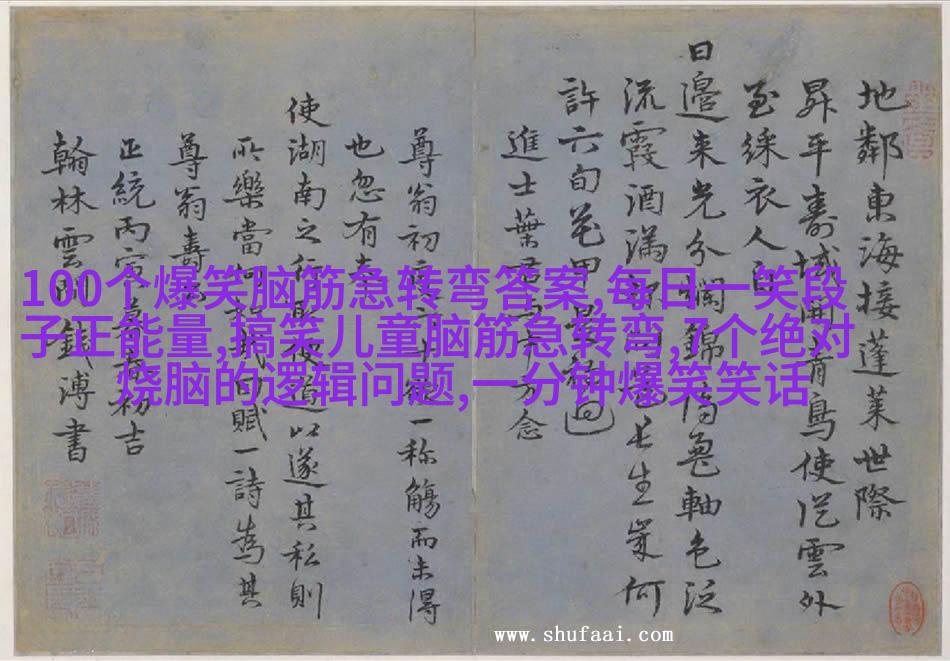 地鄰東海接蓬萊世際
昇平壽域開青鳥使從雲外
至綵衣人自
日邊來光分錦軸色泛
流霞酒滿長生何
許六旬花甲過
進士葉君方念
尊翁初一称觴而未得
也忽有
使湖南之行道以遂其私則
所樂當何賦一詩為其
尊翁壽
正統丙初吉
翰林雲間錢溥書
100个爆笑脑筋急转弯答案,每日一笑段
子正能量,搞笑儿童脑筋急转弯,7个绝对
烧脑的逻辑问题,一分钟爆笑笑话
www.shufaai.com